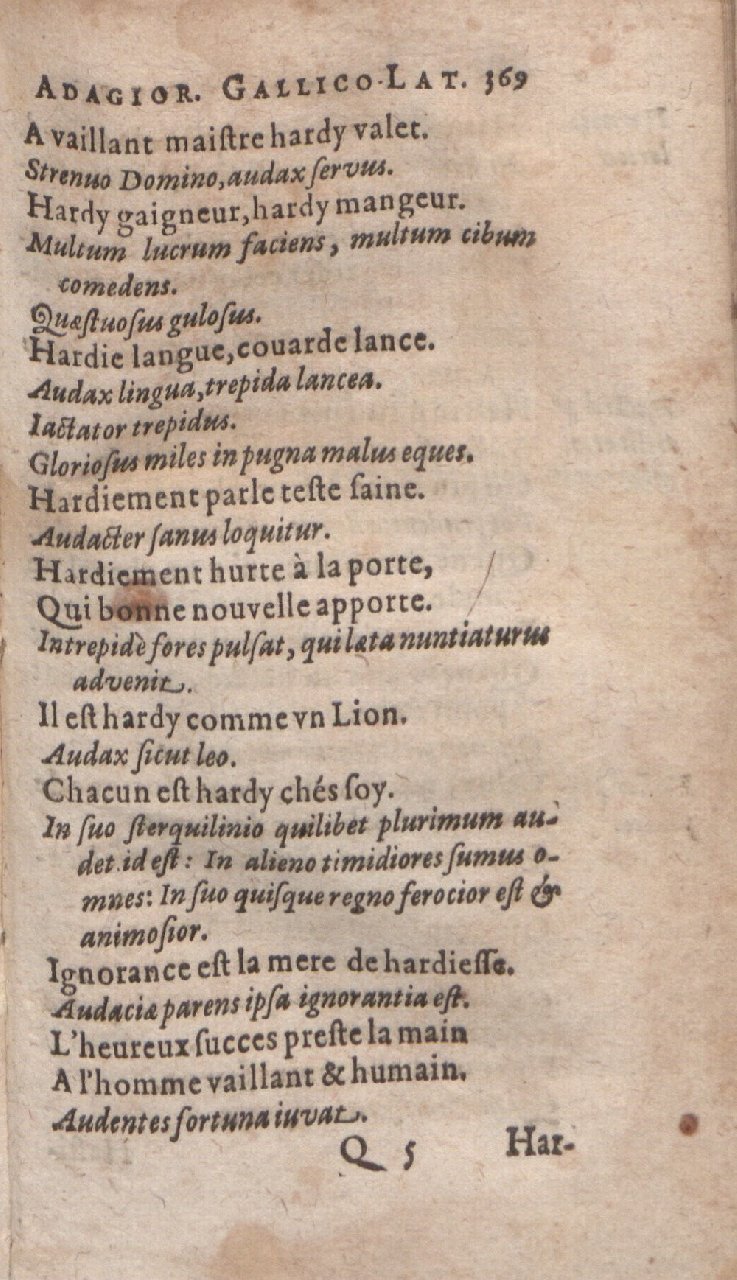 ADAGIOR. GALLICO-LAT. 369
A vaillant maiſtre hardy valet.
Strenuo Domino, audax ſervus.
Hardy gaigneur, hardy mangeur.
Multum lucrum faciens, multum cibum
comedens.
Quæſtuoſus guloſus.
Hardie langue, couarde lance.
Audax lingua, trepida lancea.
Iactator trepidus.
Glorioſus miles in pugna malus eques.
Hardiement parle teſte ſaine.
Audacter ſanus loquitur.
Hardiement hurte à la porte,
Qui bonne nouvelle apporte.
Intrepidè fores pulſat, qui læta nuntiaturus
advenit.
Il eſt hardy comme vn Lion.
Audax ſicut leo.
Chacun eſt hardy chés ſoy.
In ſuo ſterquilinio quilibet plurimum au-
det. id eſt: In alieno timidiores ſumus o-
mnes: In ſuo quiſque regno ferocior eſt &
animoſior.
Ignorance eſt la mere de hardieſſe.
Audaciæ parens ipſa ignorantia eſt.
L'heureux ſucces preſte la main
A l'homme vaillant & humain.
Audentes fortuna iuvat.
Q 5 Har-